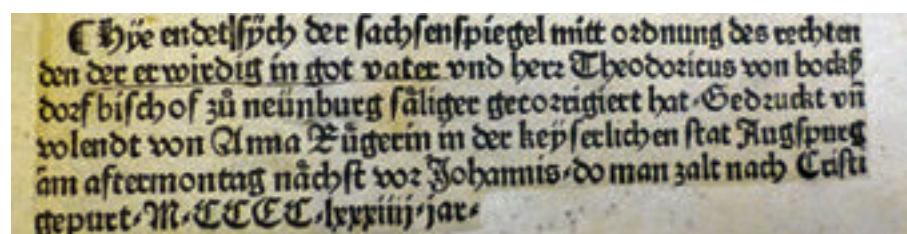 ¶ Hÿe endet sÿch der sachsenspiegel mitt ordnung des rechten
den der erwirdig in got vater vnd herr Theodoricus von bockß
dorf bischof zů neünburg såliger gecorrigiert hat. Gedruckt vñ
volendt von Anna Růgerin in der keÿserlichen stat Augspurg
am aftermontag nåchst vor Johannis. do man zalt nach Cristi
gepurt. M. CCCC. lxxxiiij. jar.